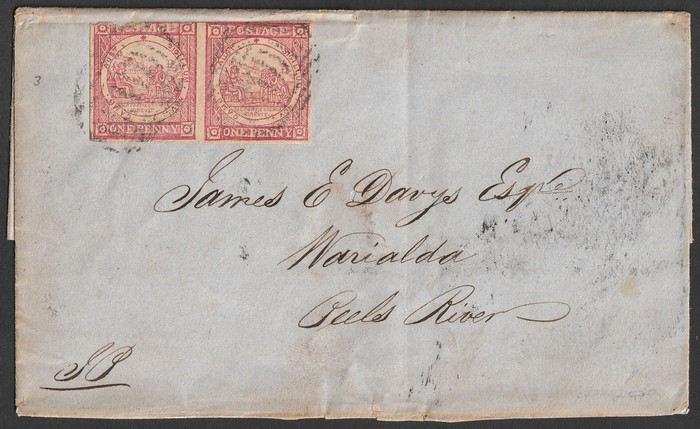 POSTAGE POSTAGE
ONE PENNY ONE PENNY
3
James E Davys Esqre
Warialda
Peels River